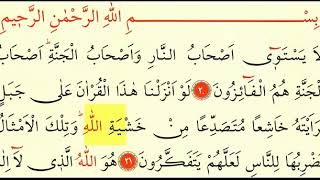 بِسْمِ اللهِ الرَّحْمٰنِ الرَّح۪يمِ
لَا يَسْتَو۪ٓي اَصْحَابُ النَّارِ وَاَصْحَابُ الْجَنَّةِۜ اَصْحَابُ
الْجَنَّةِ هُمُ الْفَٓائِزُونَ ﴿٢٠﴾ لَوْ اَنْزَلْنَا هٰذَا الْقُرْاٰنَ عَلٰى جَبَلٍ
رَاَيْتَهُ خَاشِعًا مُتَصَدِّعًا مِنْ خَشْيَةِ اللهِۜ وَتِلْكَ الْاَمْثَالُ
نَضْرِبُهَا لِلنَّاسِ لَعَلَّهُمْ يَتَفَكَّرُونَ ﴿٢١﴾ هُوَ اللهُ الَّذ۪ي لَٓا